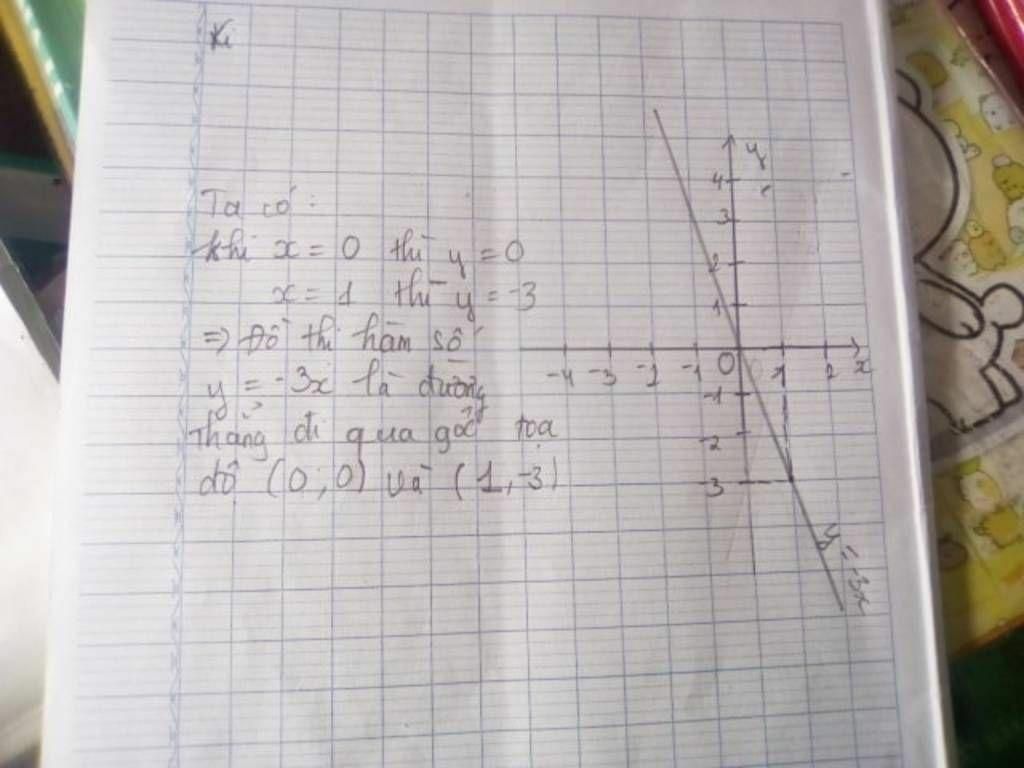 Ta có :
khi x = 0 thì y = 0
x = 1 thì y = -3
=> Đồ thị hàm số
y = -3x là đường
thẳng đi qua gốc tọa
độ (0 ; 0) và (1, -3)
y
4
3
2
1
-4 -3 -2 -1 O 1 2 x
-1
-2
-3
y = -3x